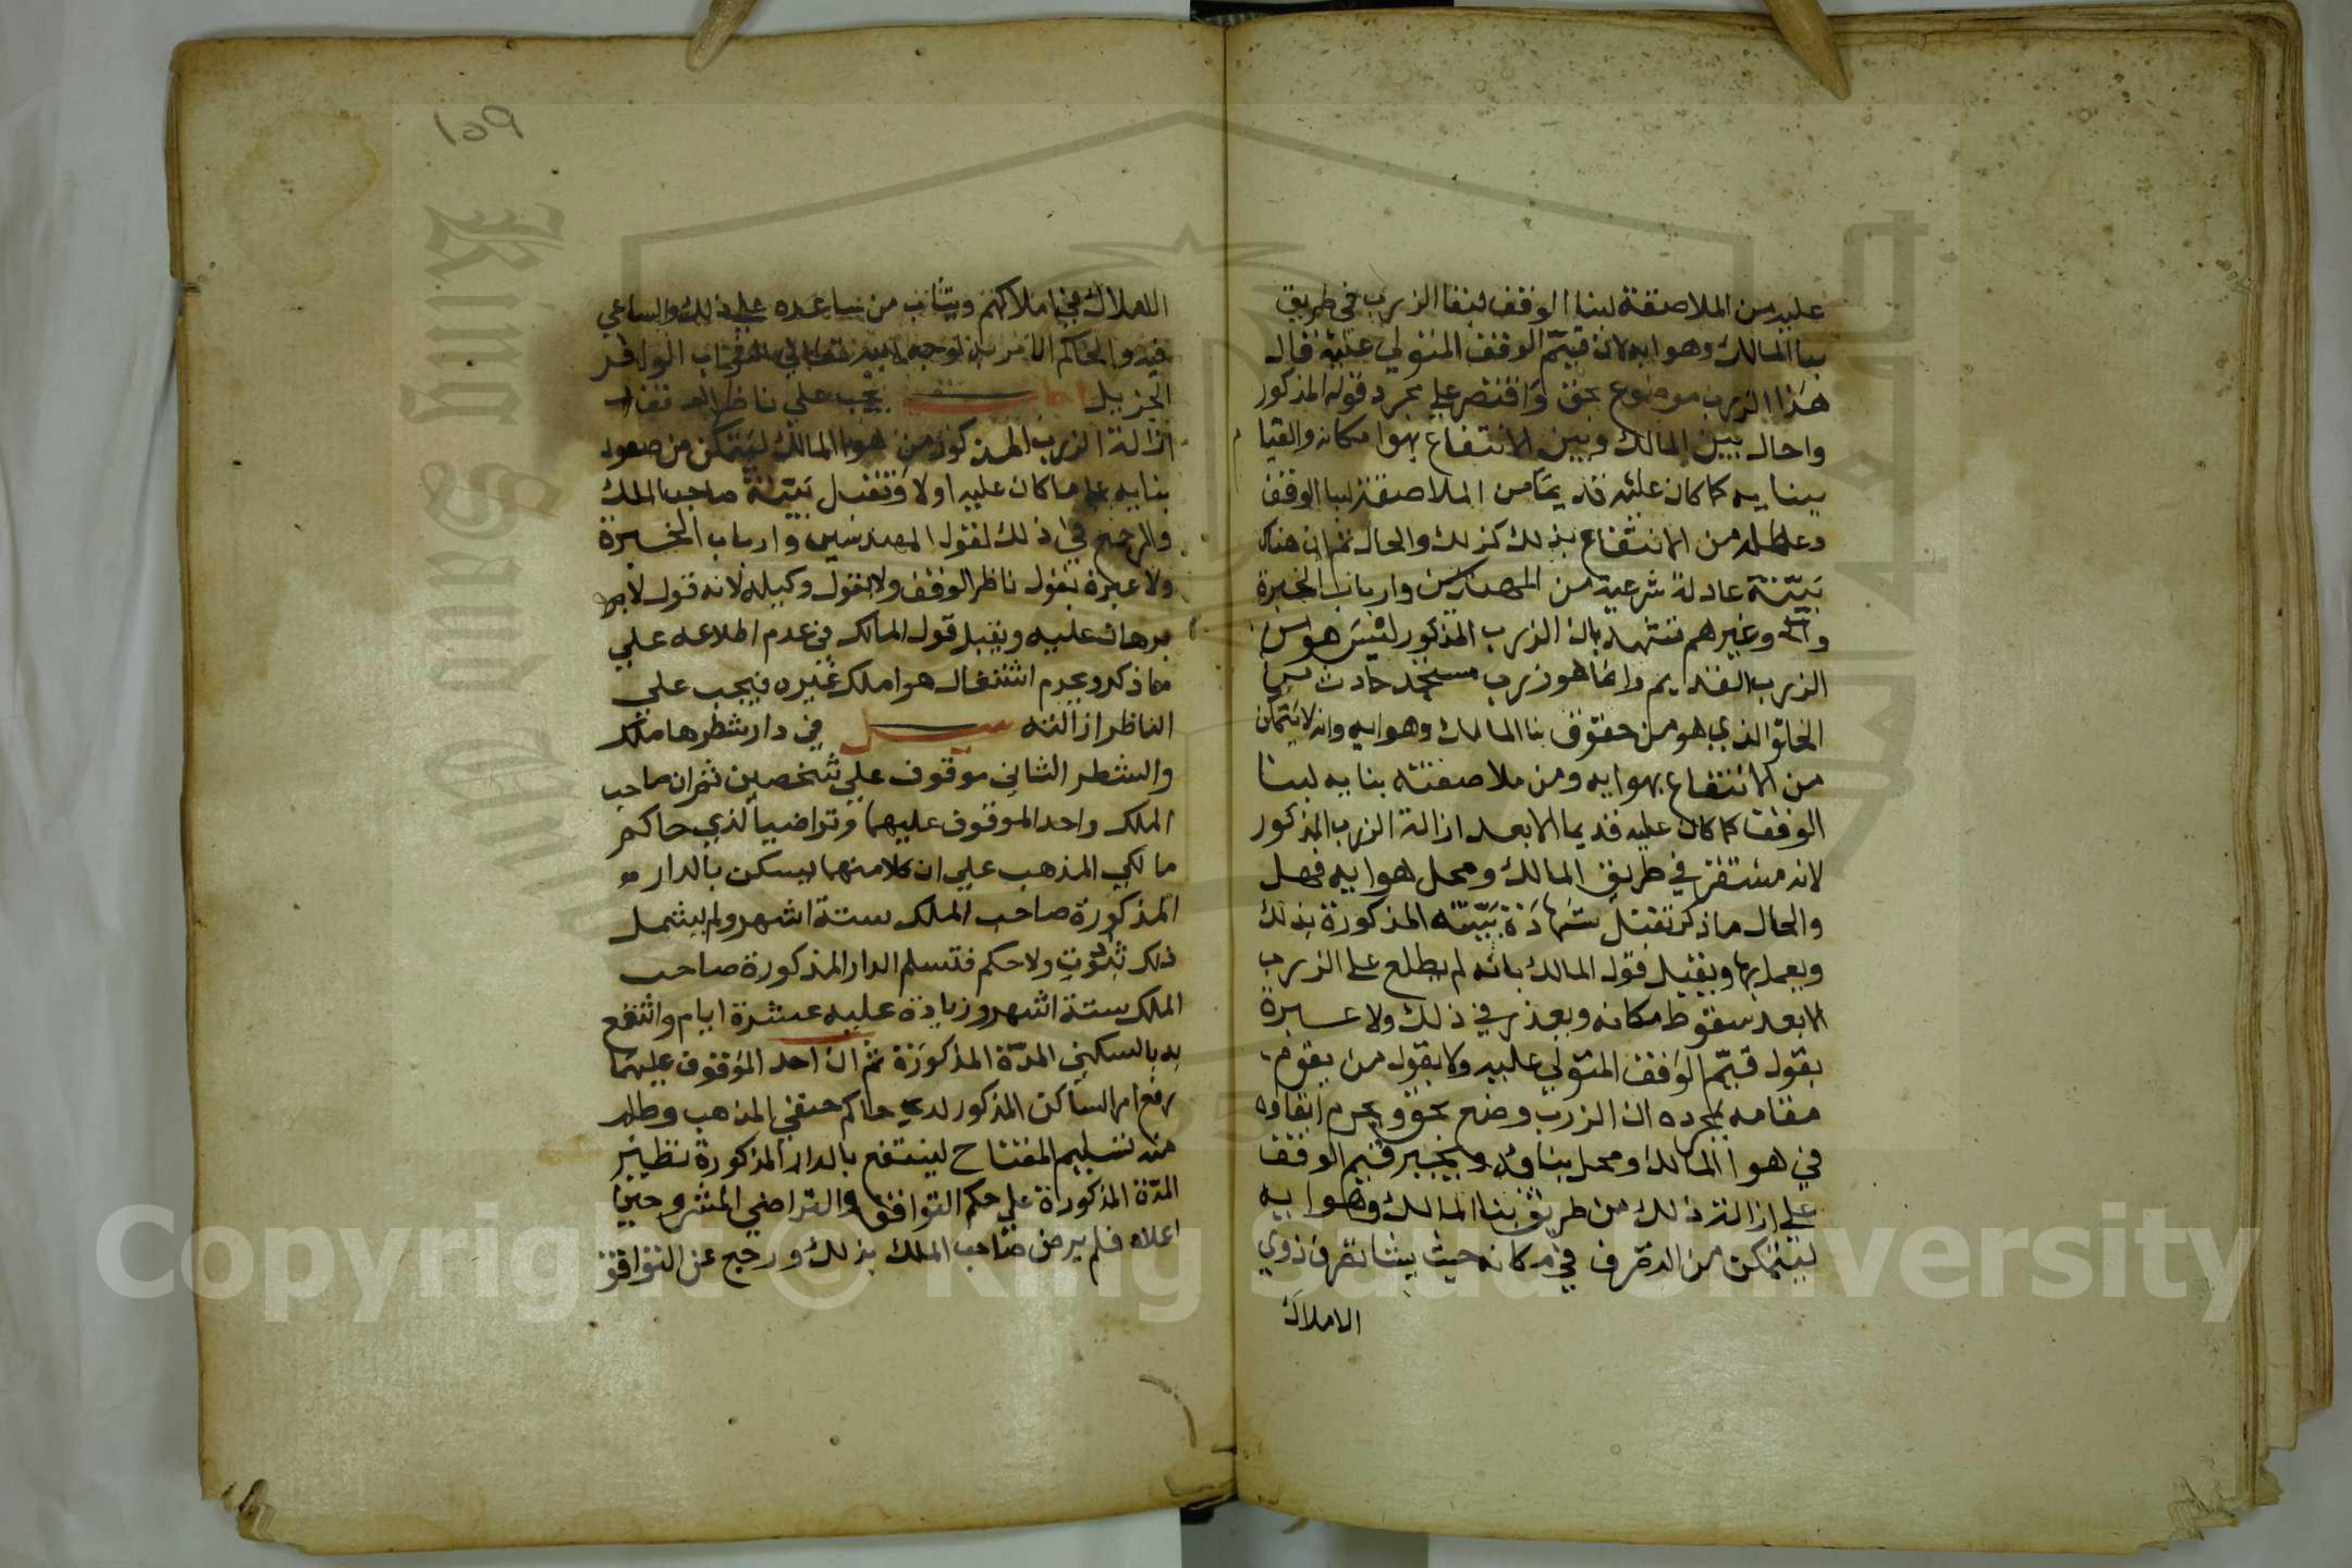 عليه من الملاصقة لبنا الوقف لبقا الزرب في طريق
بنا المالك وهوايه لان قيّم الوقف المتولي عليه قال
هذا الزرب موضوع بحق واقتصر علي مجرد قوله المذكور
واحال بين المالك وبين الانتفاع بهوا مكانه والقيا
ببنايه كما كان عليه قديما من الملاصقة لبنا الوقف
وعطله من الانتفاع بذلك كذلك والحال ثم ان هناك
بيّنة عادلة شرعية من المهندسين وارباب الخبرة
وغيرهم تشهد بان الزرب المذكور ليس هو من
الزرب القديم وانما هو زرب مستجد حادث
الذي هو من حقوق بنا المالك وهوايه وانه لا يتمكن
من الانتفاع بهوايه ومن ملاصقته بنايه لبنا
الوقف كما كان عليه قديما الا بعد ازالة الزرب المذكور
لانه مستقر في طريق المالك ومحل هوايه فهل
والحال ما ذكر تقبل شهادة بيّنته المذكورة بذلك
ويعمل بها ويقبل قول المالك بانه لم يطلع علي الزرب
الا بعد سقوط مكانه ويعذر في ذلك ولا عبرة
بقول قيّم الوقف المتولي عليه ولا بقول من يقوم
مقامه بمجرده ان الزرب وضع بحق ويحرم ابقاوه
في هوا المالك ومحل بناوه ويجبر قيم الوقف
علي ازالة ذلك من طريق بنا المالك وهوايه
ليتمكن من التصرف في مكانه حيث يشا تصرف ذوي
الاملاك
١٥٩
الاملاك في املاكهم ويثاب من ساعده علي ذلك والساعي
فيه والحاكم الامر به لوجه الله تعالي الثواب الوافر
الجزيل اجاب يجب علي ناظر الوقف
ازالة الزرب المذكور من هوا المالك ليتمكن من صعود
بنايه علي ما كان عليه اولا وتقبل بيّنة صاحب الملك
والمرجع في ذلك لقول المهندسين وارباب الخبرة
ولا عبرة بقول ناظر الوقف ولا بقول وكيله لانه قول لا
برهان عليه ويقبل قول المالك في عدم اطلاعه علي
ما ذكر وبعدم اشتغال هوا ملك غيره فيجب علي
الناظر ازالته سيل في دار شطرها ملك
والشطر الثاني موقوف علي شخصين ثم ان صاحب
الملك واحد الموقوف عليهما وتراضيا لذي حاكم
مالكي المذهب علي ان كلا منهما يسكن بالدار
المذكورة صاحب الملك ستة اشهر ولم يشمل
ذلك ثبوت ولا حكم فتسلم الدار المذكورة صاحب
الملك ستة اشهر وزيادة عليه عشرة ايام وانتفع
به بالسكني المدّة المذكورة ثم ان احد الموقوف عليهما
رفع امر الساكن المذكور لدي حاكم حنفي المذهب وطلب
منه تسليم المفتاح لينتفع بالدار المذكورة نظير
المدّة المذكورة علي حكم التوافق والتراضي المشروحين
اعلاه فلم يرض صاحب الملك بذلك ورجع عن التوافق
Copyright © King Saud University